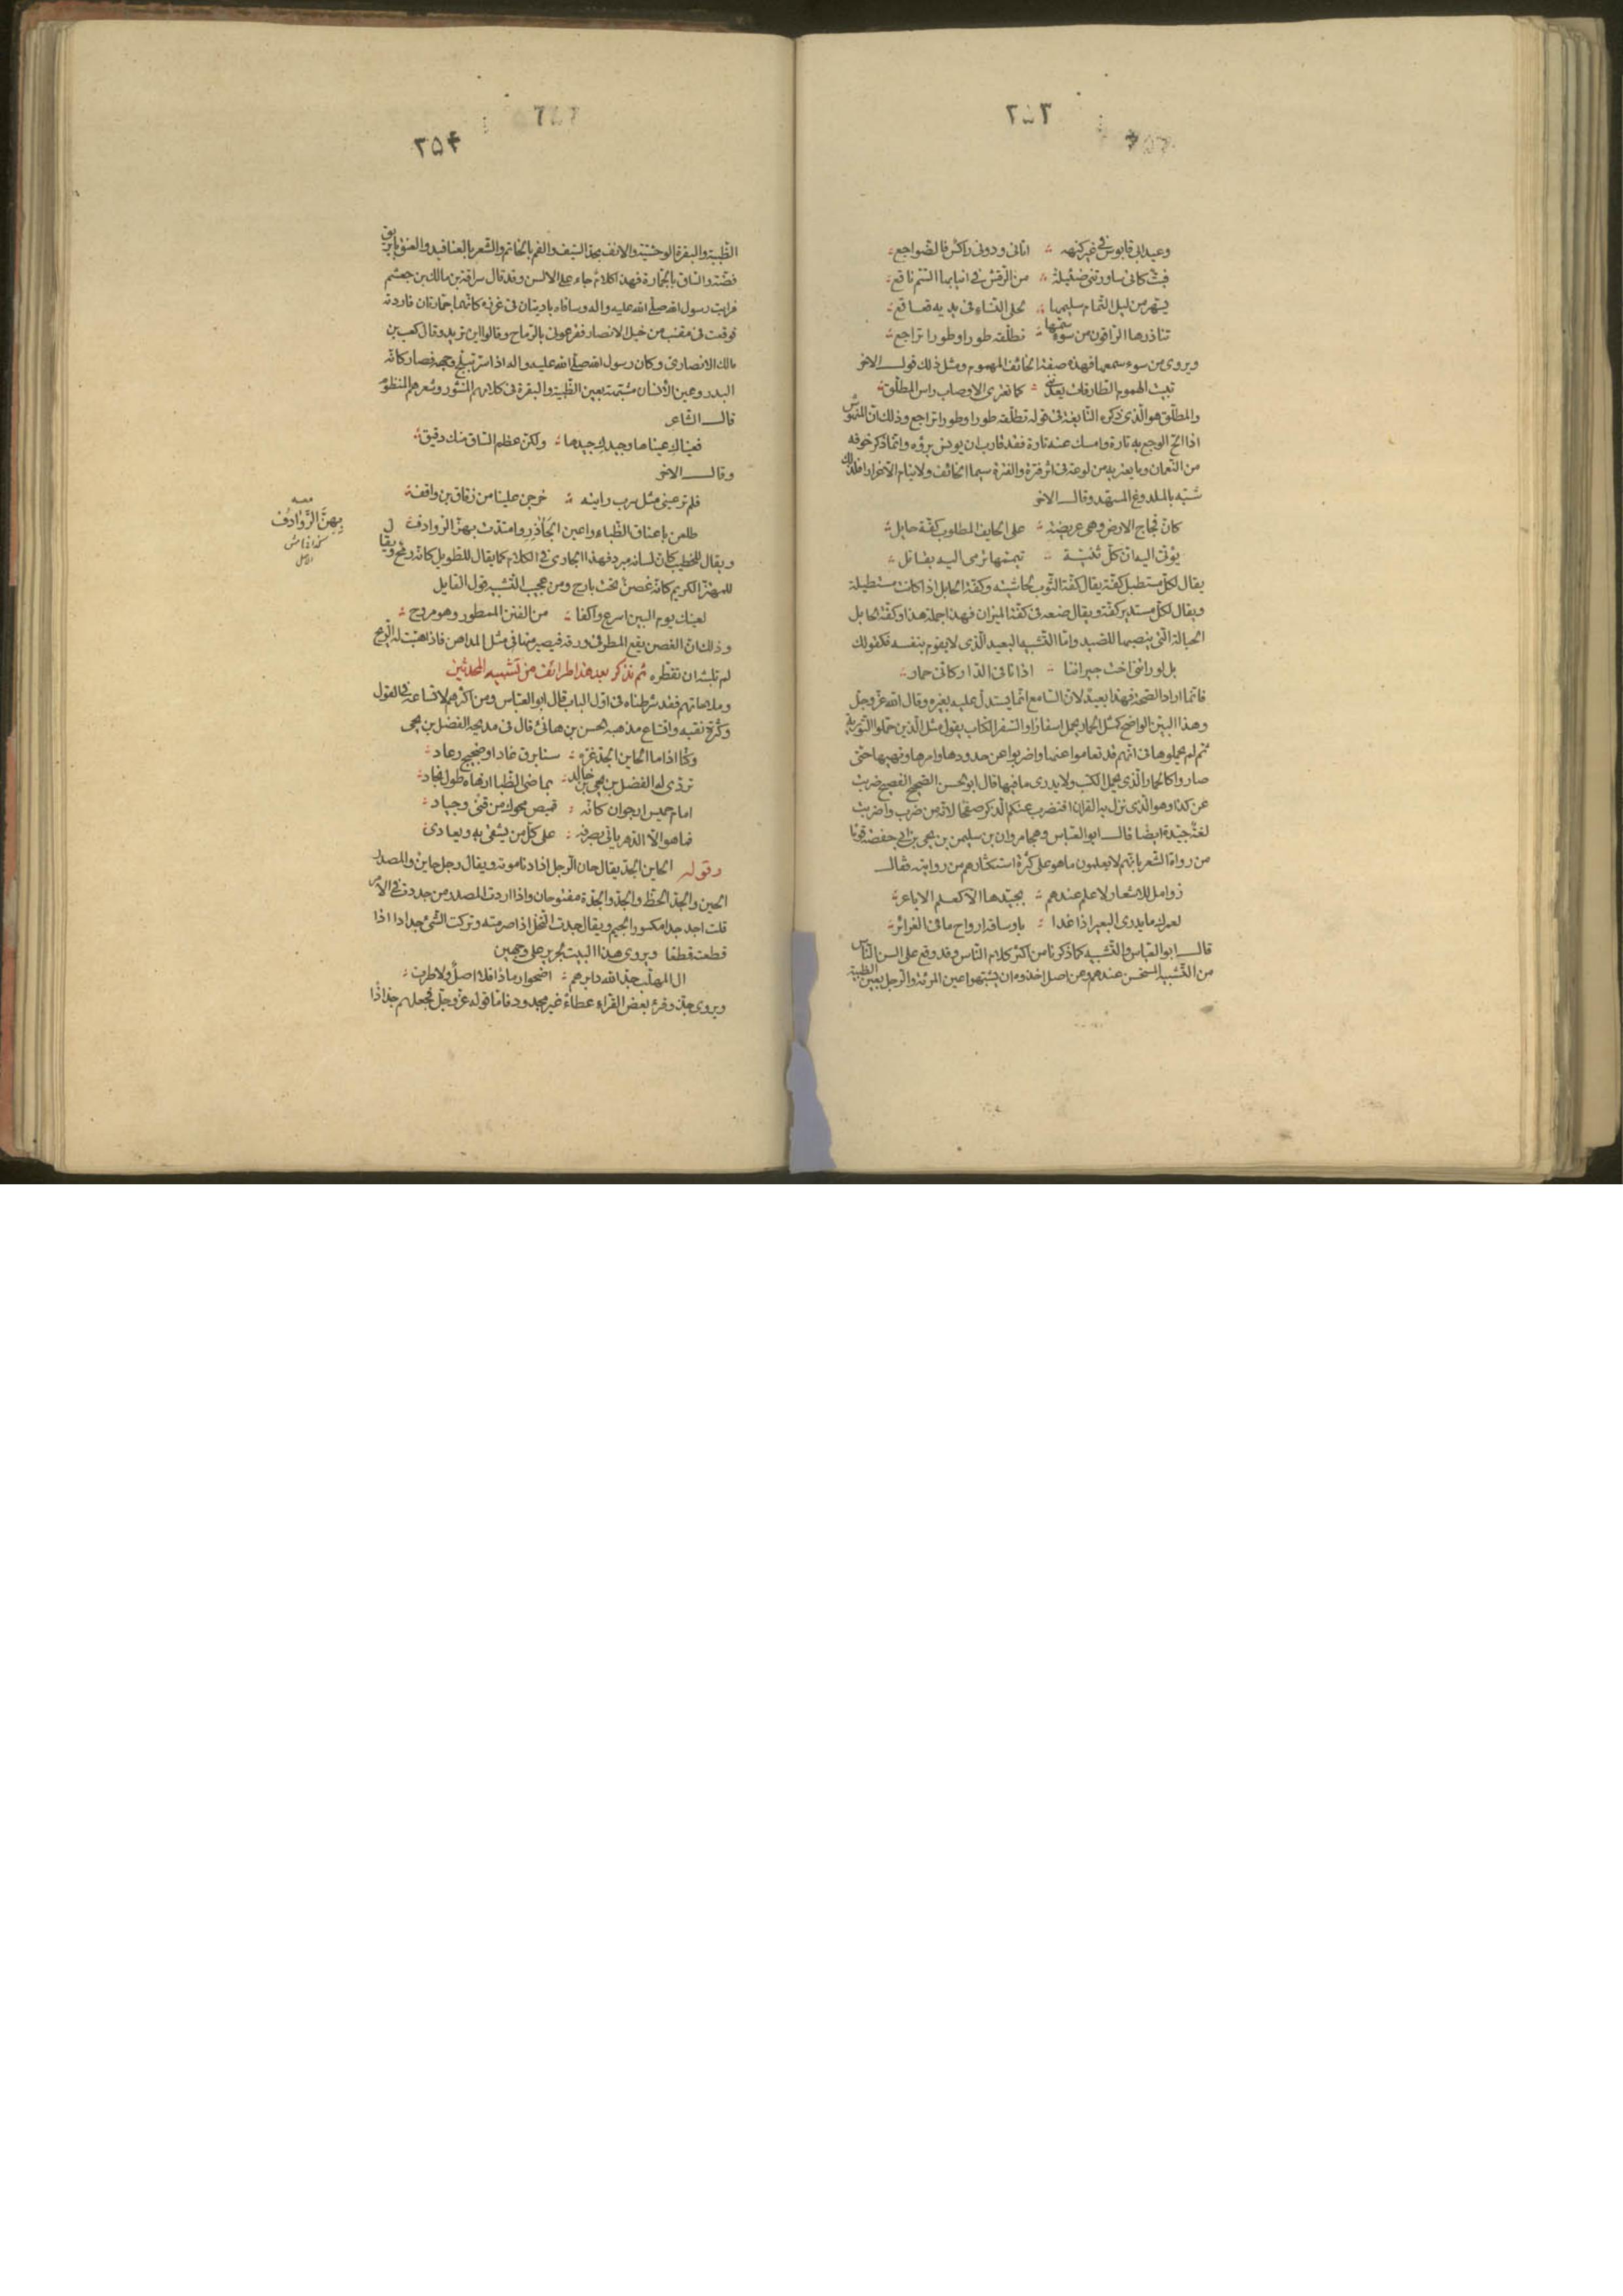 ٢٥٣
وعيد ابى قابوس فى غير كنهه ؞ اتانى ودونى راكس فالضواجع ؞
فبتّ كانى ساورتنى ضئيلة ؞ من الرقش فى انيابها السّم ناقع ؞
يسهر من ليل التمام سليمها ؞ لحلى النساء فى يديه قعاقع ؞
تناذرها الراقون من سوء سمّها ؞ تطلّقه طورا وطورا تراجع ؞
ويروى من سوء سمعها فهذه صفة الخائف المهموم ومثل ذلك قول الاخر
تبيت الهموم الطارقات يعدننى ؞ كما تعترى الاوصاب راس المطلّق ؞
والمطلّق هو الّذى ذكره النّابغة فى قوله تطلّقه طورا وطورا تراجع وذلك انّ المنهوش
اذا الحّ الوجع به تارة وامسك عنه تارة فقد قارب ان يوئس برؤه وانّما ذكر خوفه
من النّعمان وما يعتريه من لوعة فى اثر فترة والفترة سيما الخائف ولا ينام الّا غرارا فلذلك
شبّه بالملدوغ المسهّد وقال الاخر
كانّ فجاج الارض وهى عريضة ؞ على الخايف المطلوب كفّة حابل ؞
يؤتى اليه انّ كلّ ثنيّة ؞ تيمّمها ترمى اليه بقاتل ؞
يقال لكلّ مستطيل كفّة يقال كفّة الثّوب لحاشيته وكفّة الحابل اذا كانت مستطيلة
ويقال لكلّ مستدير كفّة ويقال ضعه فى كفّة الميزان فهذا جملة هذا وكفّة الحابل
الحبالة الّتى ينصبها للصّيد وامّا التّشبيه البعيد الّذى لا يقوم بنفسه فكقولك
بل لو راتنى اخت جيراننا ؞ اذ انا فى الدّار كانّى حمار ؞
فانّما اراد الصّحة فهذا بعيد لانّ السّامع انّما يستدلّ عليه بغيره وقال الله عزّ وجلّ
وهذا البيّن الواضح كمثل الحمار يحمل اسفارا والسّفر الكتاب يقول مثل الّذين حمّلوا التّورية
ثم لم يحملوها فى انّهم قد تعاموا عنها واضربوا عن حدودها وامرها ونهيها حتّى
صاروا كالحمار الّذى يحمل الكتب ولا يدرى ما فيها قال ابو الحسن الصّحيح الفصيح ضربت
عن كذا وهو الّذى نزل به القرآن افنضرب عنكم الذّكر صفحا لانّه من ضرب واضربت
لغة جيّدة ايضا قال ابو العبّاس وهجا مروان بن سليمن بن يحيى بن ابى حفصة قوما
من رواة الشّعر بانّهم لا يعلمون ما هو على كثرة استكثارهم من روايته فقال
زوامل للاشعار لا علم عندهم ؞ بجيّدها الّا كعلم الاباعر ؞
لعمرك ما يدرى البعير اذا غدا ؞ باوساقه او راح ما فى الغرائر ؞
قال ابو العبّاس والتّشبيه كما ذكرنا من اكثر كلام النّاس وقد وقع على السن النّاس
من التّشبيه المستحسن عندهم وعن اصل اخذوه ان يشبّهوا عين المرأة والرّجل بعين الظّبية
٣٥٤
الظّبية والبقرة الوحشيّة والانف بحدّ السّيف والفم بالخاتم والشّعر بالعناقيد والعنق بابريق
فضّة والسّاق بالجمّارة فهذا كلام جاء على الالسن وقد قال سراقة بن مالك بن جعشم
فرايت رسول الله صلّى الله عليه واله وساقاه باديتان فى غرزه كانّهما جمّارتان فاردته
فوقعت فى مقنب من خيل الانصار فقرعونى بالرّماح وقالوا اين تريد وقال كعب بن
مالك الانصارى وكان رسول الله صلّى الله عليه واله اذا سرّ تبلّج وجهه فصار كانّه
البدر وعين الانسان مشبّهة بعين الظّبية والبقرة فى كلامهم المنثور وشعرهم المنظوم
قال الشّاعر
فعيناك عيناها وجيدك جيدها ؞ ولكنّ عظم السّاق منك دقيق ؞
وقال الاخر
فلم تر عينى مثل سرب رايته ؞ خرجن علينا من زقاق بن واقف ؞
طلعن باعناق الظّباء واعين الجآذر وامتدّت بهنّ الرّوادف
ويقال للخطيب كانّ لسانه مبرد فهذا الجارى فى الكلام كما يقال للطّويل كانّه رمح ويقال
للمهتزّ الكريم كانّه غصن تحت بارح ومن عجيب التّشبيه قول القايل
لعينك يوم البين اسرع واكفا ؞ من الفنن الممطور وهو مروّح ؞
وذلك انّ الغصن يقع المطر فى ورقه فيصير منها فى مثل المداهن فاذا هبّت له الرّيح
لم تلبثه ان تقطّره ثم نذكر بعد هذا طرائف من تشبيه المحدثين
وملاحاتهم فقد شرطناه فى اوّل الباب قال ابو العبّاس ومن اكثرهم لاتّساعه فى القول
وكثرة تفنّنه واتّساع مذهبه الحسن بن هانئ قال فى مديحه الفضل بن يحيى
وكنّا اذا ما الحاين الجدّ غرّه ؞ سنا برق غاد او ضجيج رعاد ؞
تردّى له الفضل بن يحيى بن خالد ؞ بماضى الظّبا ازهاه طول نجاد ؞
امام خميس ارجوان كانّه ؞ قميص محوك من قنى وجياد ؞
فما هو الّا الدّهر ياتى بصرفه ؞ على كلّ من يشقى به ويعادى ؞
وقوله الحاين الجدّ يقال حان الرّجل اذا دنا موته ويقال رجل حاين والمصدر
الحين والجدّ الحظّ والجدّ والجدّة مفتوحان واذا اردت المصدر من جددت فى الامر
قلت اجد جدا مكسور الجيم ويقال جددت النّخل اذا صرمته وتركت الشّئ جدادا اذا
قطعته قطعا ويروى هذا البيت لجرير على وجهين
ال المهلّب جدّ الله دابرهم ؞ اضحوا رمادا فلا اصل ولا طرف ؞
ويروى جذّ وقرئ بعض القرّاء عطاء غير مجدود فامّا قوله عزّ وجلّ فجعلهم جذاذا
معه
بِهِنَّ الرَّوَادِفُ